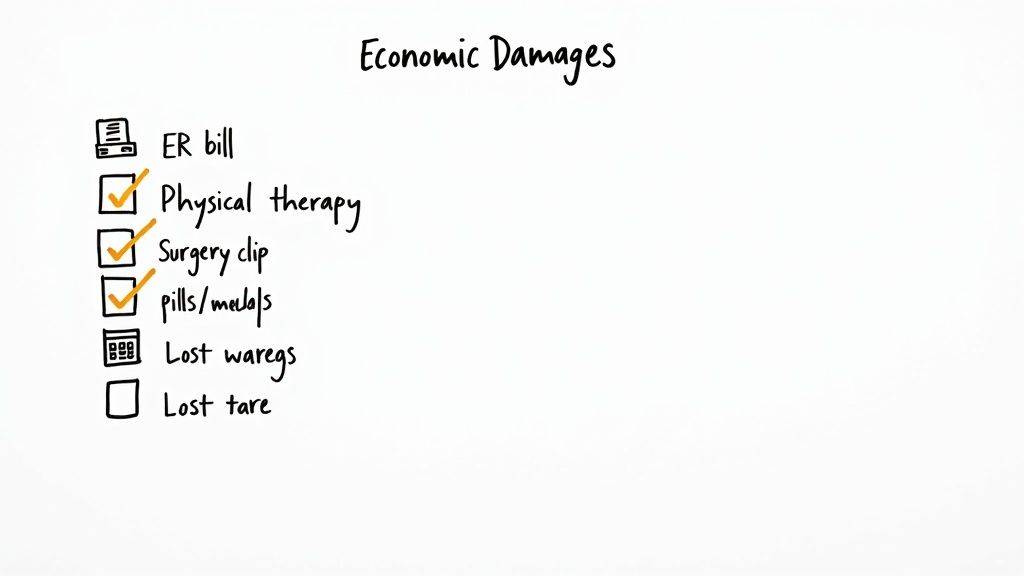 Economic Damages
ER bill
Physical therapy
Surgery clip
pills/
Lost waregs
Lost tare